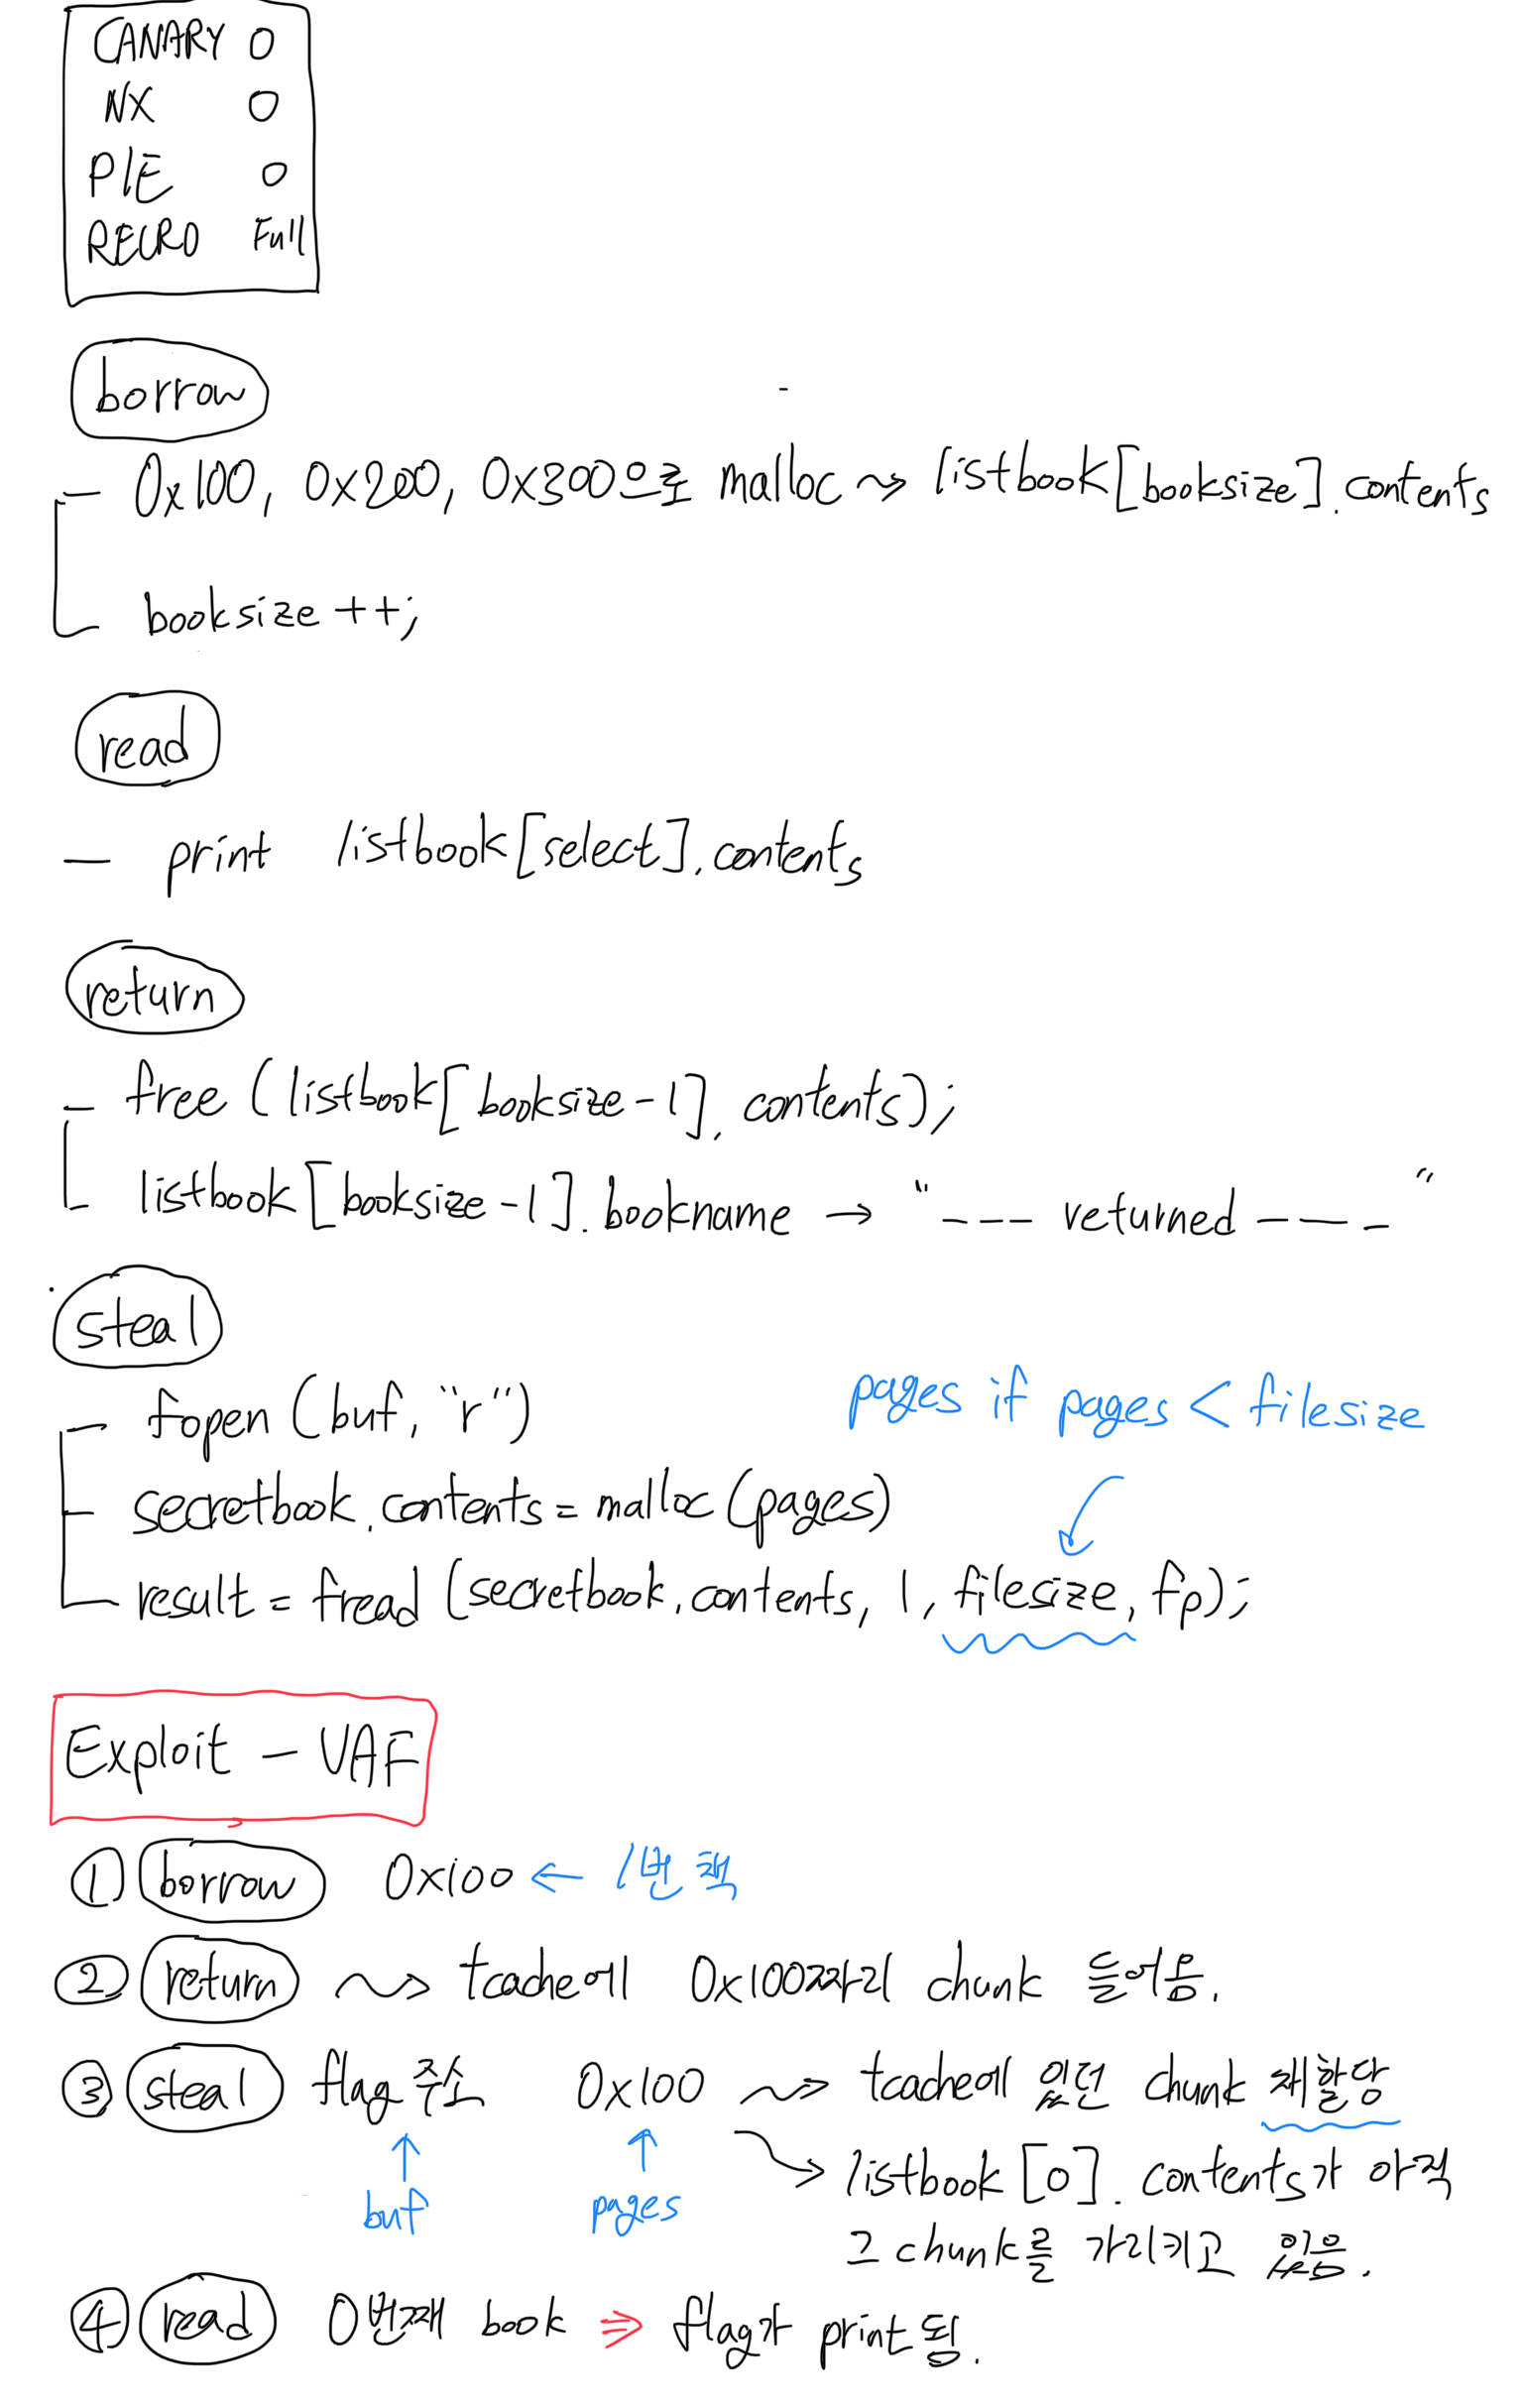 CANARY O
NX O
PIE O
RELRO Full
borrow
- 0x100, 0x200, 0x300으로 malloc → listbook[booksize].contents
- booksize ++;
read
- print listbook[select].contents
return
- free (listbook[booksize-1].contents);
- listbook[booksize-1].bookname → "--- returned ----"
steal
- fopen(buf, "r")
pages if pages < filesize
- secretbook.contents = malloc(pages)
- result = fread(secretbook.contents, 1, filesize, fp);
Exploit - UAF
① borrow 0x100 ← 1번 책
② return → tcache에 0x100짜리 chunk 들어옴.
③ steal flag 주소 0x100 → tcache에 있던 chunk 재할당
↑ buf ↑ pages → listbook[0].contents가 아직
그 chunk를 가리키고 있음.
④ read 0번째 book ⇒ flag가 print 됨.